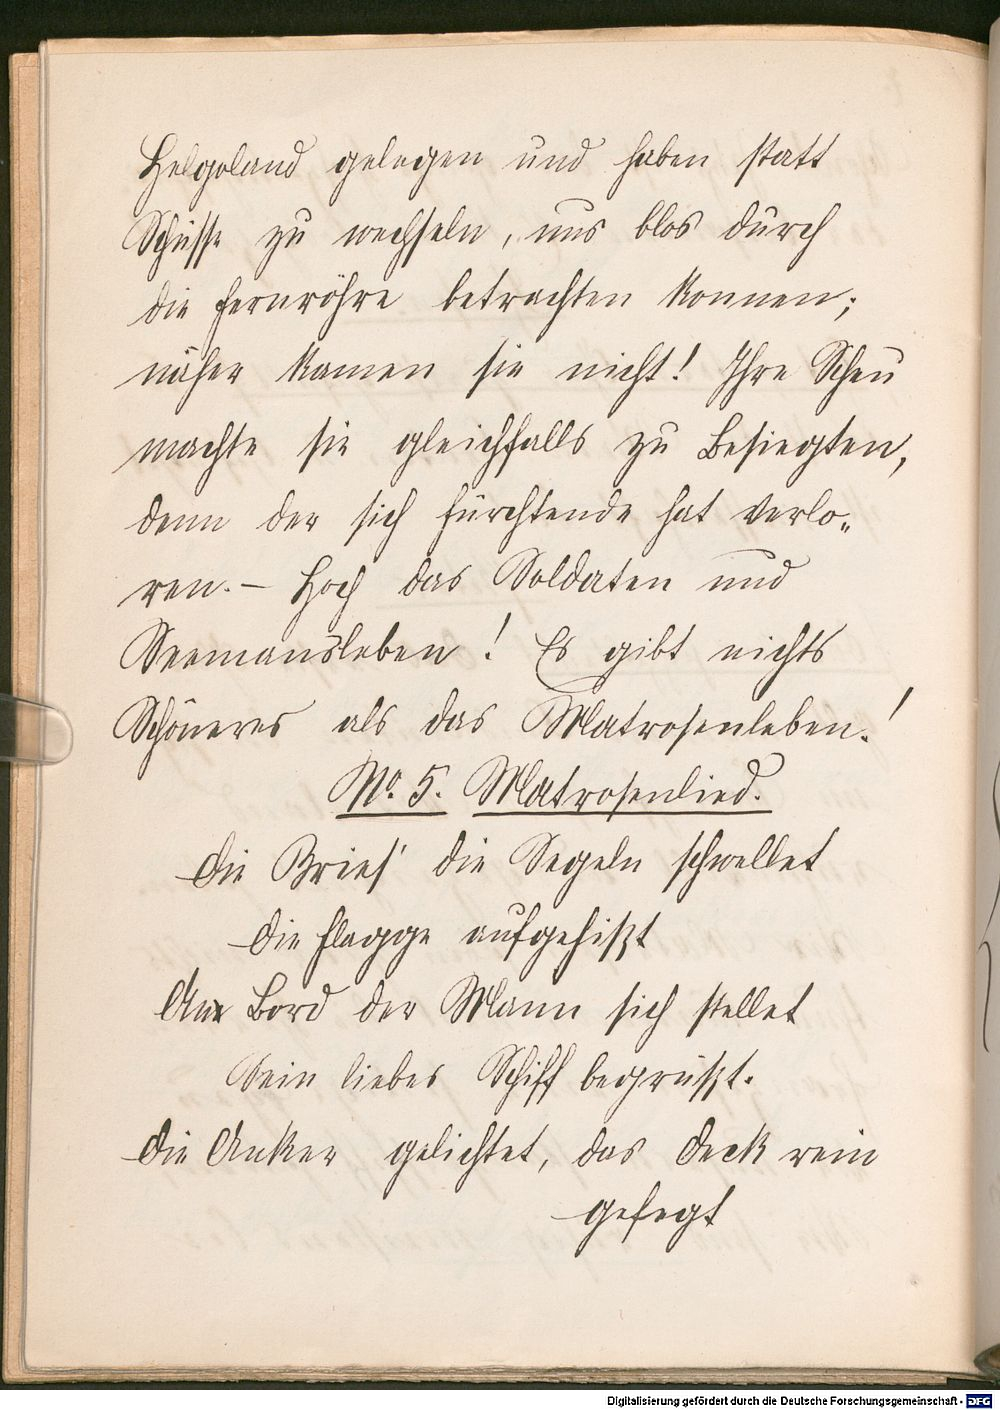 Helgoland gelegen und haben statt
Schüsse zu wechseln, uns blos durch
die Fernröhre betrachten können;
näher kamen sie nicht! Ihre Scheu
machte sie gleichfalls zu Besiegten,
denn der sich fürchtende hat verlo„
ren. – Hoch das Soldaten und
Seemansleben! Es gibt nichts
Schöneres als das Matrosenleben!
No. 5. Matrosenlied.
Die Bries' die Segeln schwellet
Die Flagge aufgehißt
An Bord der Mann sich stellet
Sein liebes Schiff begrüßt.
Die Anker gelichtet, das Deck rein
gefegt
Digitalisierung gefördert durch die Deutsche Forschungsgemeinschaft - DFG